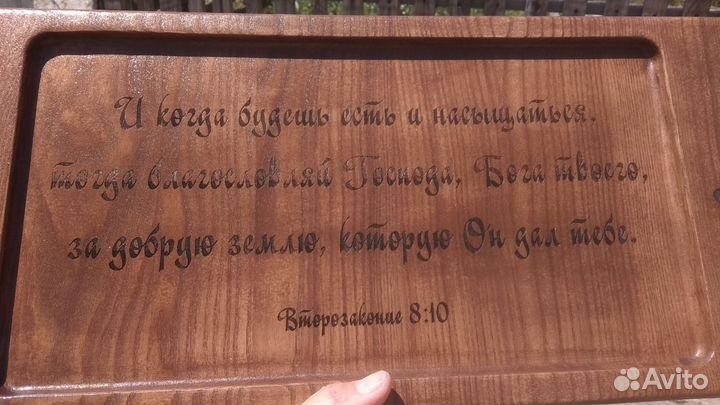 И когда будешь есть и насыщаться,
тогда благословляй Господа, Бога твоего,
за добрую землю, которую Он дал тебе.
Второзаконие 8:10
Avito